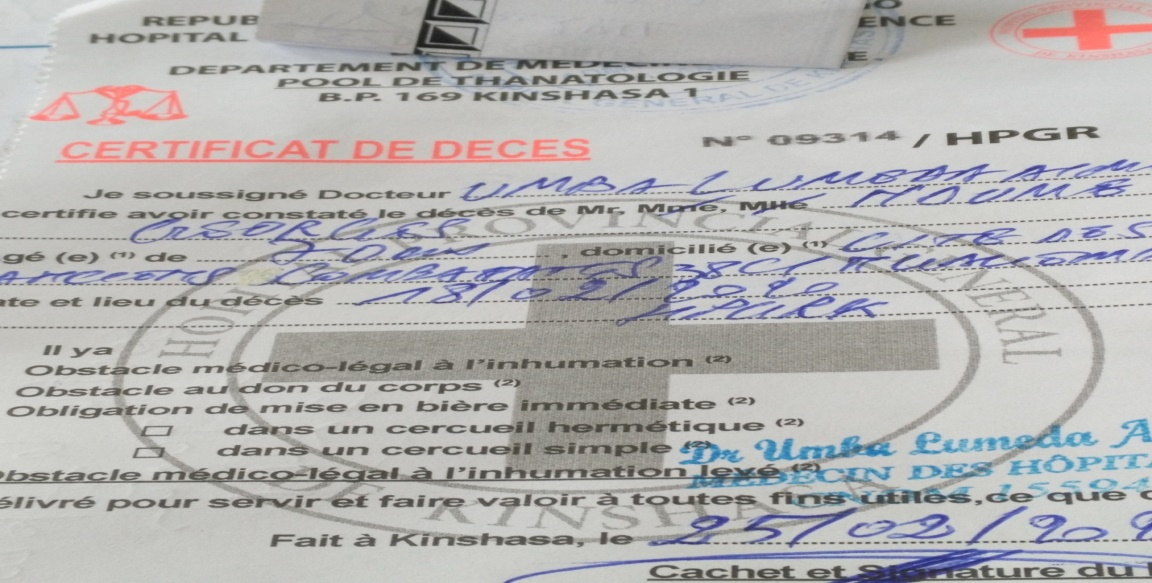 REPUB
ENCE
HOPITAL
E.
DEPARTEMENT DE MEDECIN
POOL DE THANATOLOGIE
B.P. 169 KINSHASA 1
CERTIFICAT DE DECES
N° 09314 / HPGR
Je soussigné Docteur UMBA LUMEDA
certifie avoir constaté le décès de Mr, Mme, Mlle
GEORGES
gé (e) (1) de , domicilié (e) (1) CITE DES
ANCIENS COMBATTANTS 38C/
te et lieu du décès 18/02/2020
Il ya
Obstacle médico-légal à l'inhumation (2)
Obstacle au don du corps (2)
Obligation de mise en bière immédiate (2)
dans un cercueil hermétique (2)
dans un cercueil simple (2)
Dr Umba Lumeda A
Obstacle médico-légal à l'inhumation levé (2)
MEDECIN DES HÔPITA
élivré pour servir et faire valoir à toutes fins utiles,ce que
Fait à Kinshasa, le 25/02/20
Cachet et Signature du
HOPITAL PROVINCIAL GENERAL
KINSHASA